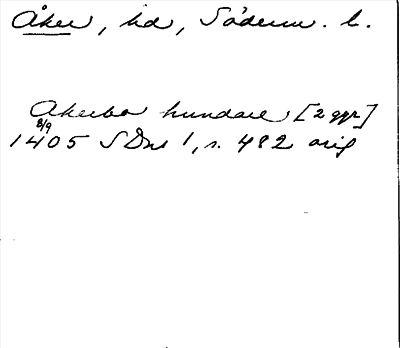 Åker, hd, Söderm. l.
Akerbo hundare [2 ggr]
8/9
1405 SDns 1, s. 482 orig